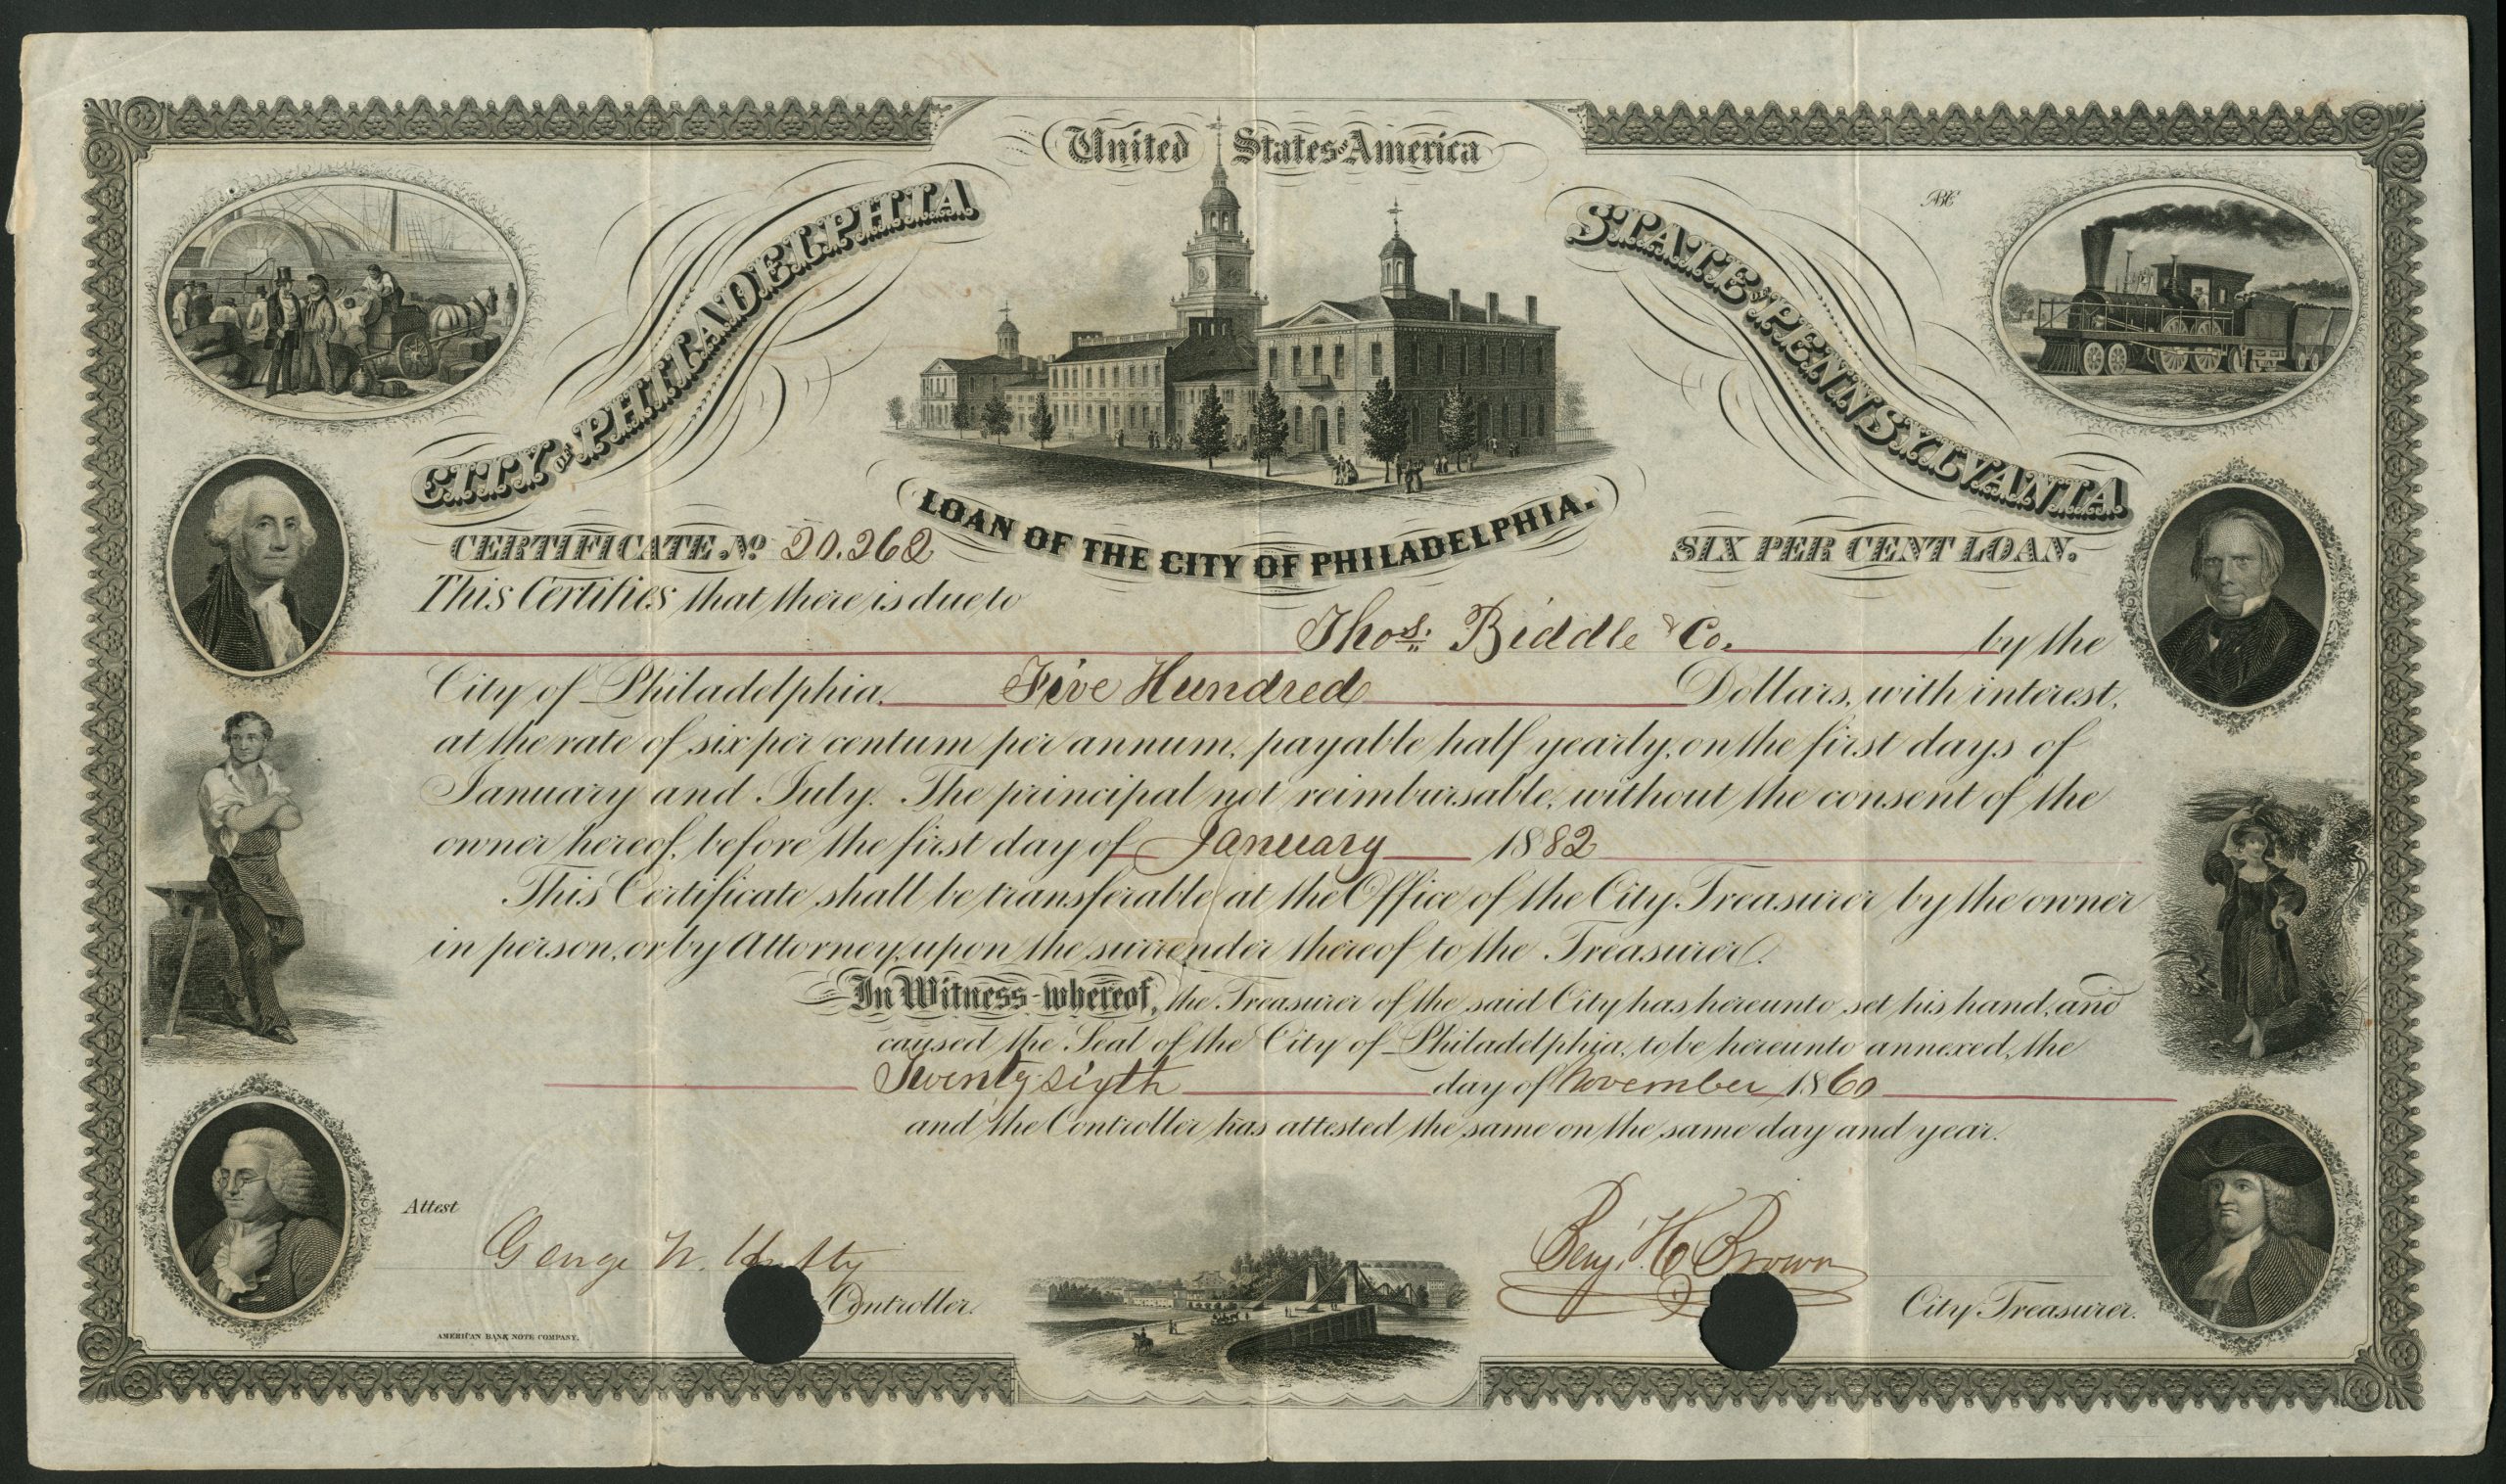 United States of America
CITY OF PHILADELPHIA
STATE OF PENNSYLVANIA
ABC
LOAN OF THE CITY OF PHILADELPHIA.
CERTIFICATE No 20.262
SIX PER CENT LOAN.
This Certifies that there is due to
Thos. Biddle & Co. by the
City of Philadelphia, Five Hundred Dollars, with interest,
at the rate of six per centum per annum, payable half yearly, on the first days of
January and July. The principal not reimbursable, without the consent of the
owner hereof, before the first day of January 1882
This Certificate shall be transferable at the Office of the City Treasurer by the owner
in person, or by Attorney, upon the surrender thereof to the Treasurer.
In Witness whereof, the Treasurer of the said City has hereunto set his hand, and
caused the Seal of the City of Philadelphia, to be hereunto annexed, the
Twenty sixth day of November 1860
and the Controller has attested the same on the same day and year.
Attest
George W. Hufty
Benj. H Brown
Controller.
City Treasurer.
AMERICAN BANK NOTE COMPANY.